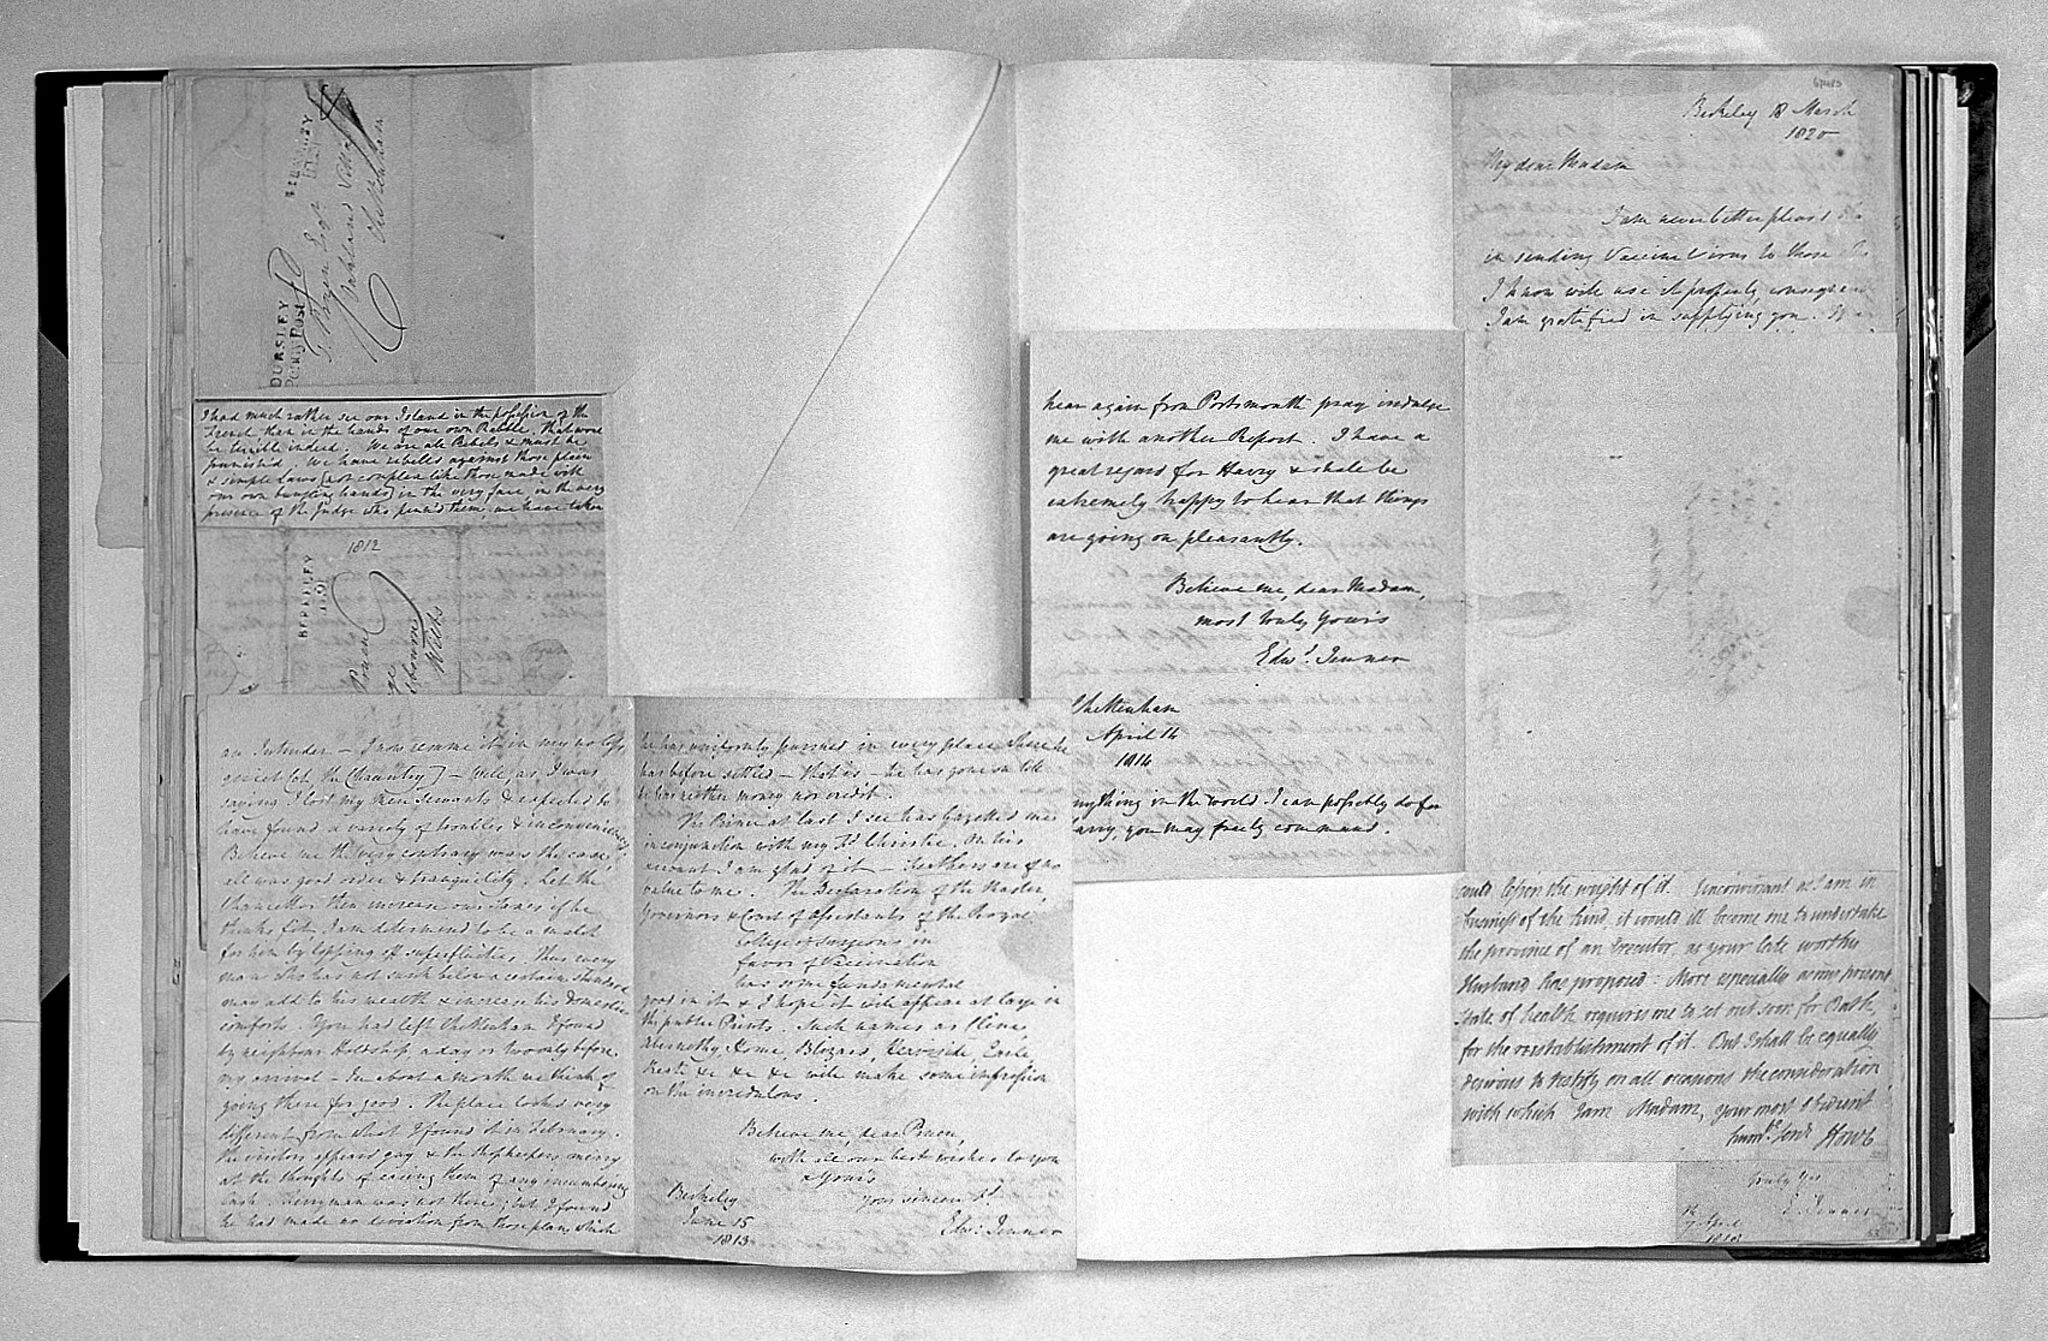 BERKELEY
DURSLEY
Penny Post
T. Pruen Esqr
Cheltenham
I had much rather see our Island in the possession of the
French than in the hands of our own Rabble. That wou'd
be terrible indeed. We are all Rebels & must be
punish'd. We have rebell'd against those plain
& simple Laws (not complex like those made with
our own bungling hands) in the very face, in the very
presence of the Judge who penn'd them, we have taken
1812
BERKELEY
Pruen
Wilts
an Intruder – I now resume it in my no less
quiet Cot, the Chauntry] – Well, as I was
saying I lost my Men Servants & expected to
have found a variety of troubles & inconveniencies.
Believe me the very contrary was the case,
all was good order & tranquility. Let the
Chancellor then increase our Taxes if he
thinks fit, I am determin'd to be a match
for him by lopping off superfluities. Thus every
man who has not sunk below a certain standard
may add to his wealth & increase his domestic
comforts. You had left Cheltenham I found
by neighbour Holdship, a day or two only before
my arrival – In about a month we think of
going there for good. The place looked very
different from what I found it in February.
The visitors appear'd gay & the Shopkeepers merry
at the thoughts of easing them of any incumbering
Cash. Merryman was not there; but I found
he had made no deviation from those plans which
he has uniformly pursued in every place where he
has before settled – that is – he has gone on till
he has neither money nor credit.
The Prince at last I see has Gazetted me
in conjunction with my Fd Christie. On his
account I am glad of it – Feathers are of no
value to me. The Declaration of the Master,
Governors & Court of Assistants of the Royal
College of Surgeons in
favor of Vaccination
has some fundamental
good in it & I hope it will appear at large in
the public Prints. Such names as Cline,
Abernethy, Home, Blizard, Keate
&c &c &c will make some impression
on the incredulous.
Believe me, dear Pruen,
with all our best wishes to you
& Yours
your sincere Fd
Edwd Jenner
Berkeley
June 15
1813
hear again from Portsmouth pray indulge
me with another Report. I have a
great regard for Harry & shall be
extremely happy to hear that things
are going on pleasantly.
Believe me, dear Madam,
most truly Yours
Edwd Jenner
Cheltenham
April 14
1814
anything in the world I can possibly do for
Harry, you may freely command.
Berkeley 18 March
1820
My dear Madam
I am never better pleas'd
in sending Vaccine Virus to those
I know will use it properly,
I am gratified in supplying you.
could lessen the weight of it. Unconversant as I am in
business of the kind, it would ill become me to undertake
the province of an Executor, as your late worthy
Husband has proposed: More especially as my present
state of health requires me to set out soon for Bath,
for the reestablishment of it. But I shall be equally
desirous to testify on all occasions the consideration
with which I am Madam, your most obedient
humble Servt Howe
truly Yrs
E. Jenner
April